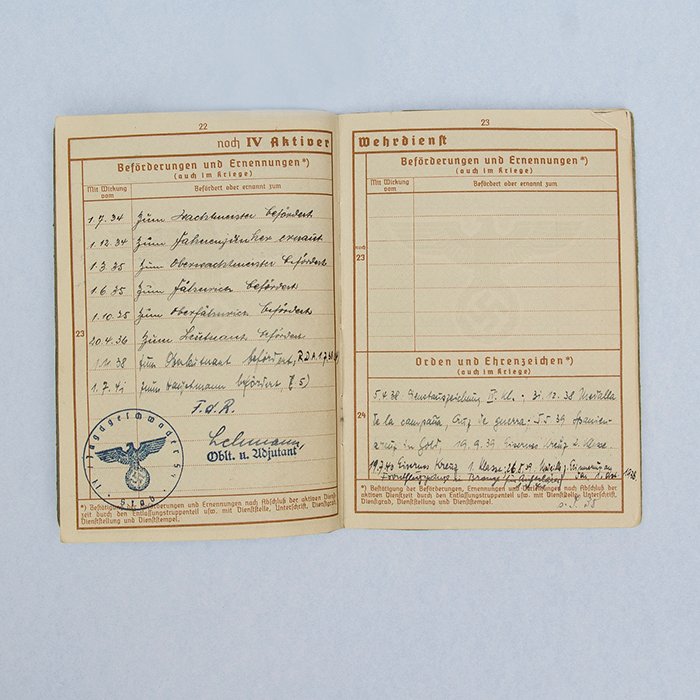 22
noch IV Aktiver
Beförderungen und Ernennungen*)
(auch im Kriege)
Mit Wirkung vom
Befördert oder ernannt zum
1.7.34 Zum Wachtmeister befördert
1.12.34 Zum Fahnenjunker ernannt
1.3.35 Zum Oberwachtmeister befördert
1.6.35 Zum Fähnrich befördert
1.10.35 Zum Oberfähnrich befördert
23
20.4.36 Zum Leutnant befördert
38 zum Oberleutnant befördert, R.D.A.
1.7.41 zum Hauptmann befördert, (5)
F.d.R.
Lehmann
Oblt. u. Adjutant
*) Bestätigung der Beförderungen und Ernennungen nach Abschluß der aktiven Dienst-
zeit durch den Entlassungstruppenteil usw. mit Dienststelle, Unterschrift, Dienstgrad,
Dienststellung und Dienststempel.
23
Wehrdienst
Beförderungen und Ernennungen*)
(auch im Kriege)
Mit Wirkung vom
Befördert oder ernannt zum
noch
23
Orden und Ehrenzeichen*)
(auch im Kriege)
5.4.38 Dienstauszeichnung Kl. - 31.12.38 Medalla
de la campaña, Cruz de guerra - 39 Spanien-
24
in Gold, 19.9.39 Eisernes Kreuz 2. Klasse
19.7.40 Eisernes Kreuz 1. Klasse, 26.5.39 Erinnerung an
1.
*) Bestätigung der Beförderungen, Ernennungen und Verleihungen nach Abschluß der
aktiven Dienstzeit durch den Entlassungstruppenteil usw. mit Dienststelle, Unterschrift,
Dienstgrad, Dienststellung und Dienststempel.